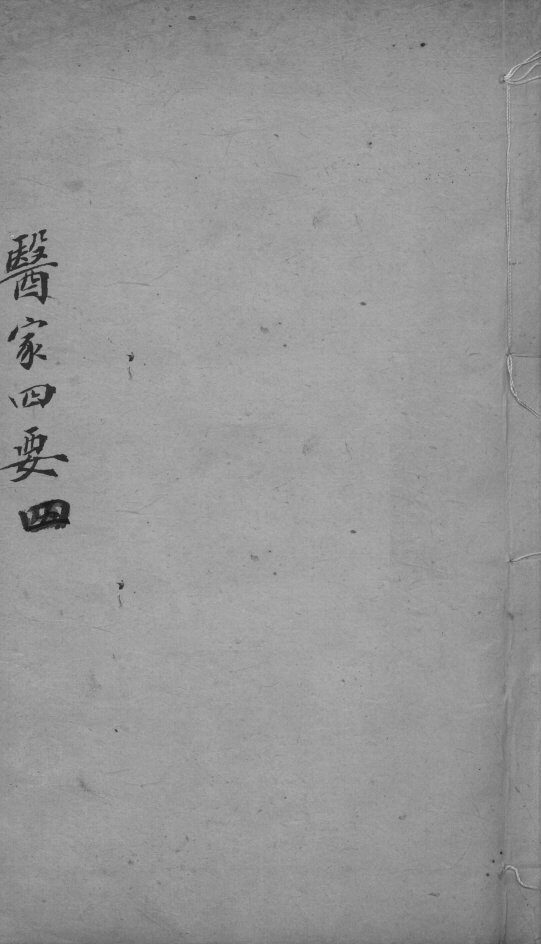 醫家四要四